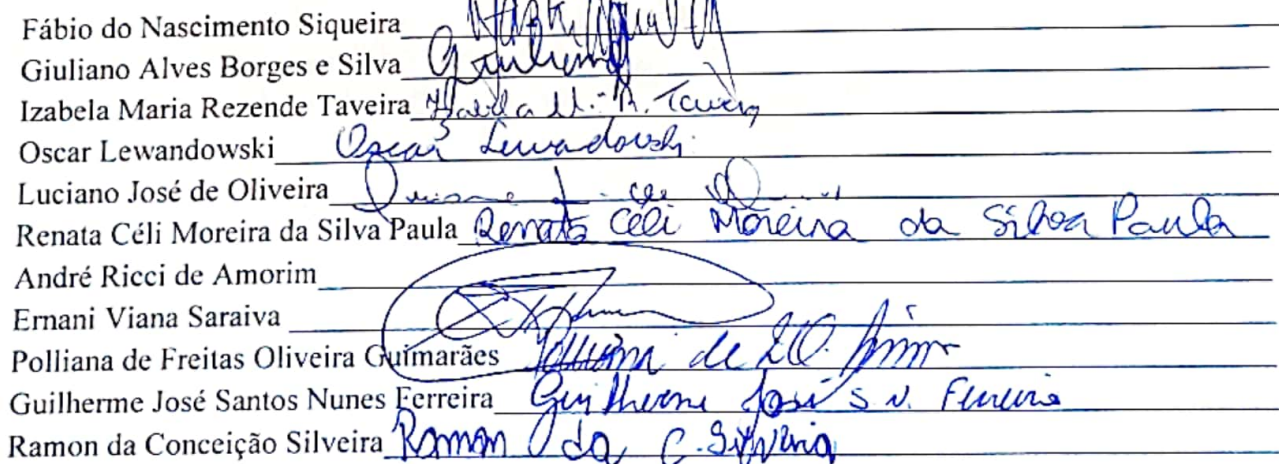 Fábio do Nascimento Siqueira
Giuliano Alves Borges e Silva Giuliano
Izabela Maria Rezende Taveira Izabela M. R. Taveira
Oscar Lewandowski Oscar Lewandowski
Luciano José de Oliveira
Renata Céli Moreira da Silva Paula Renata Céli Moreira da Silva Paula
André Ricci de Amorim
Ernani Viana Saraiva
Polliana de Freitas Oliveira Guimarães
Guilherme José Santos Nunes Ferreira Guilherme José S. N. Ferreira
Ramon da Conceição Silveira Ramon da C. Silveira